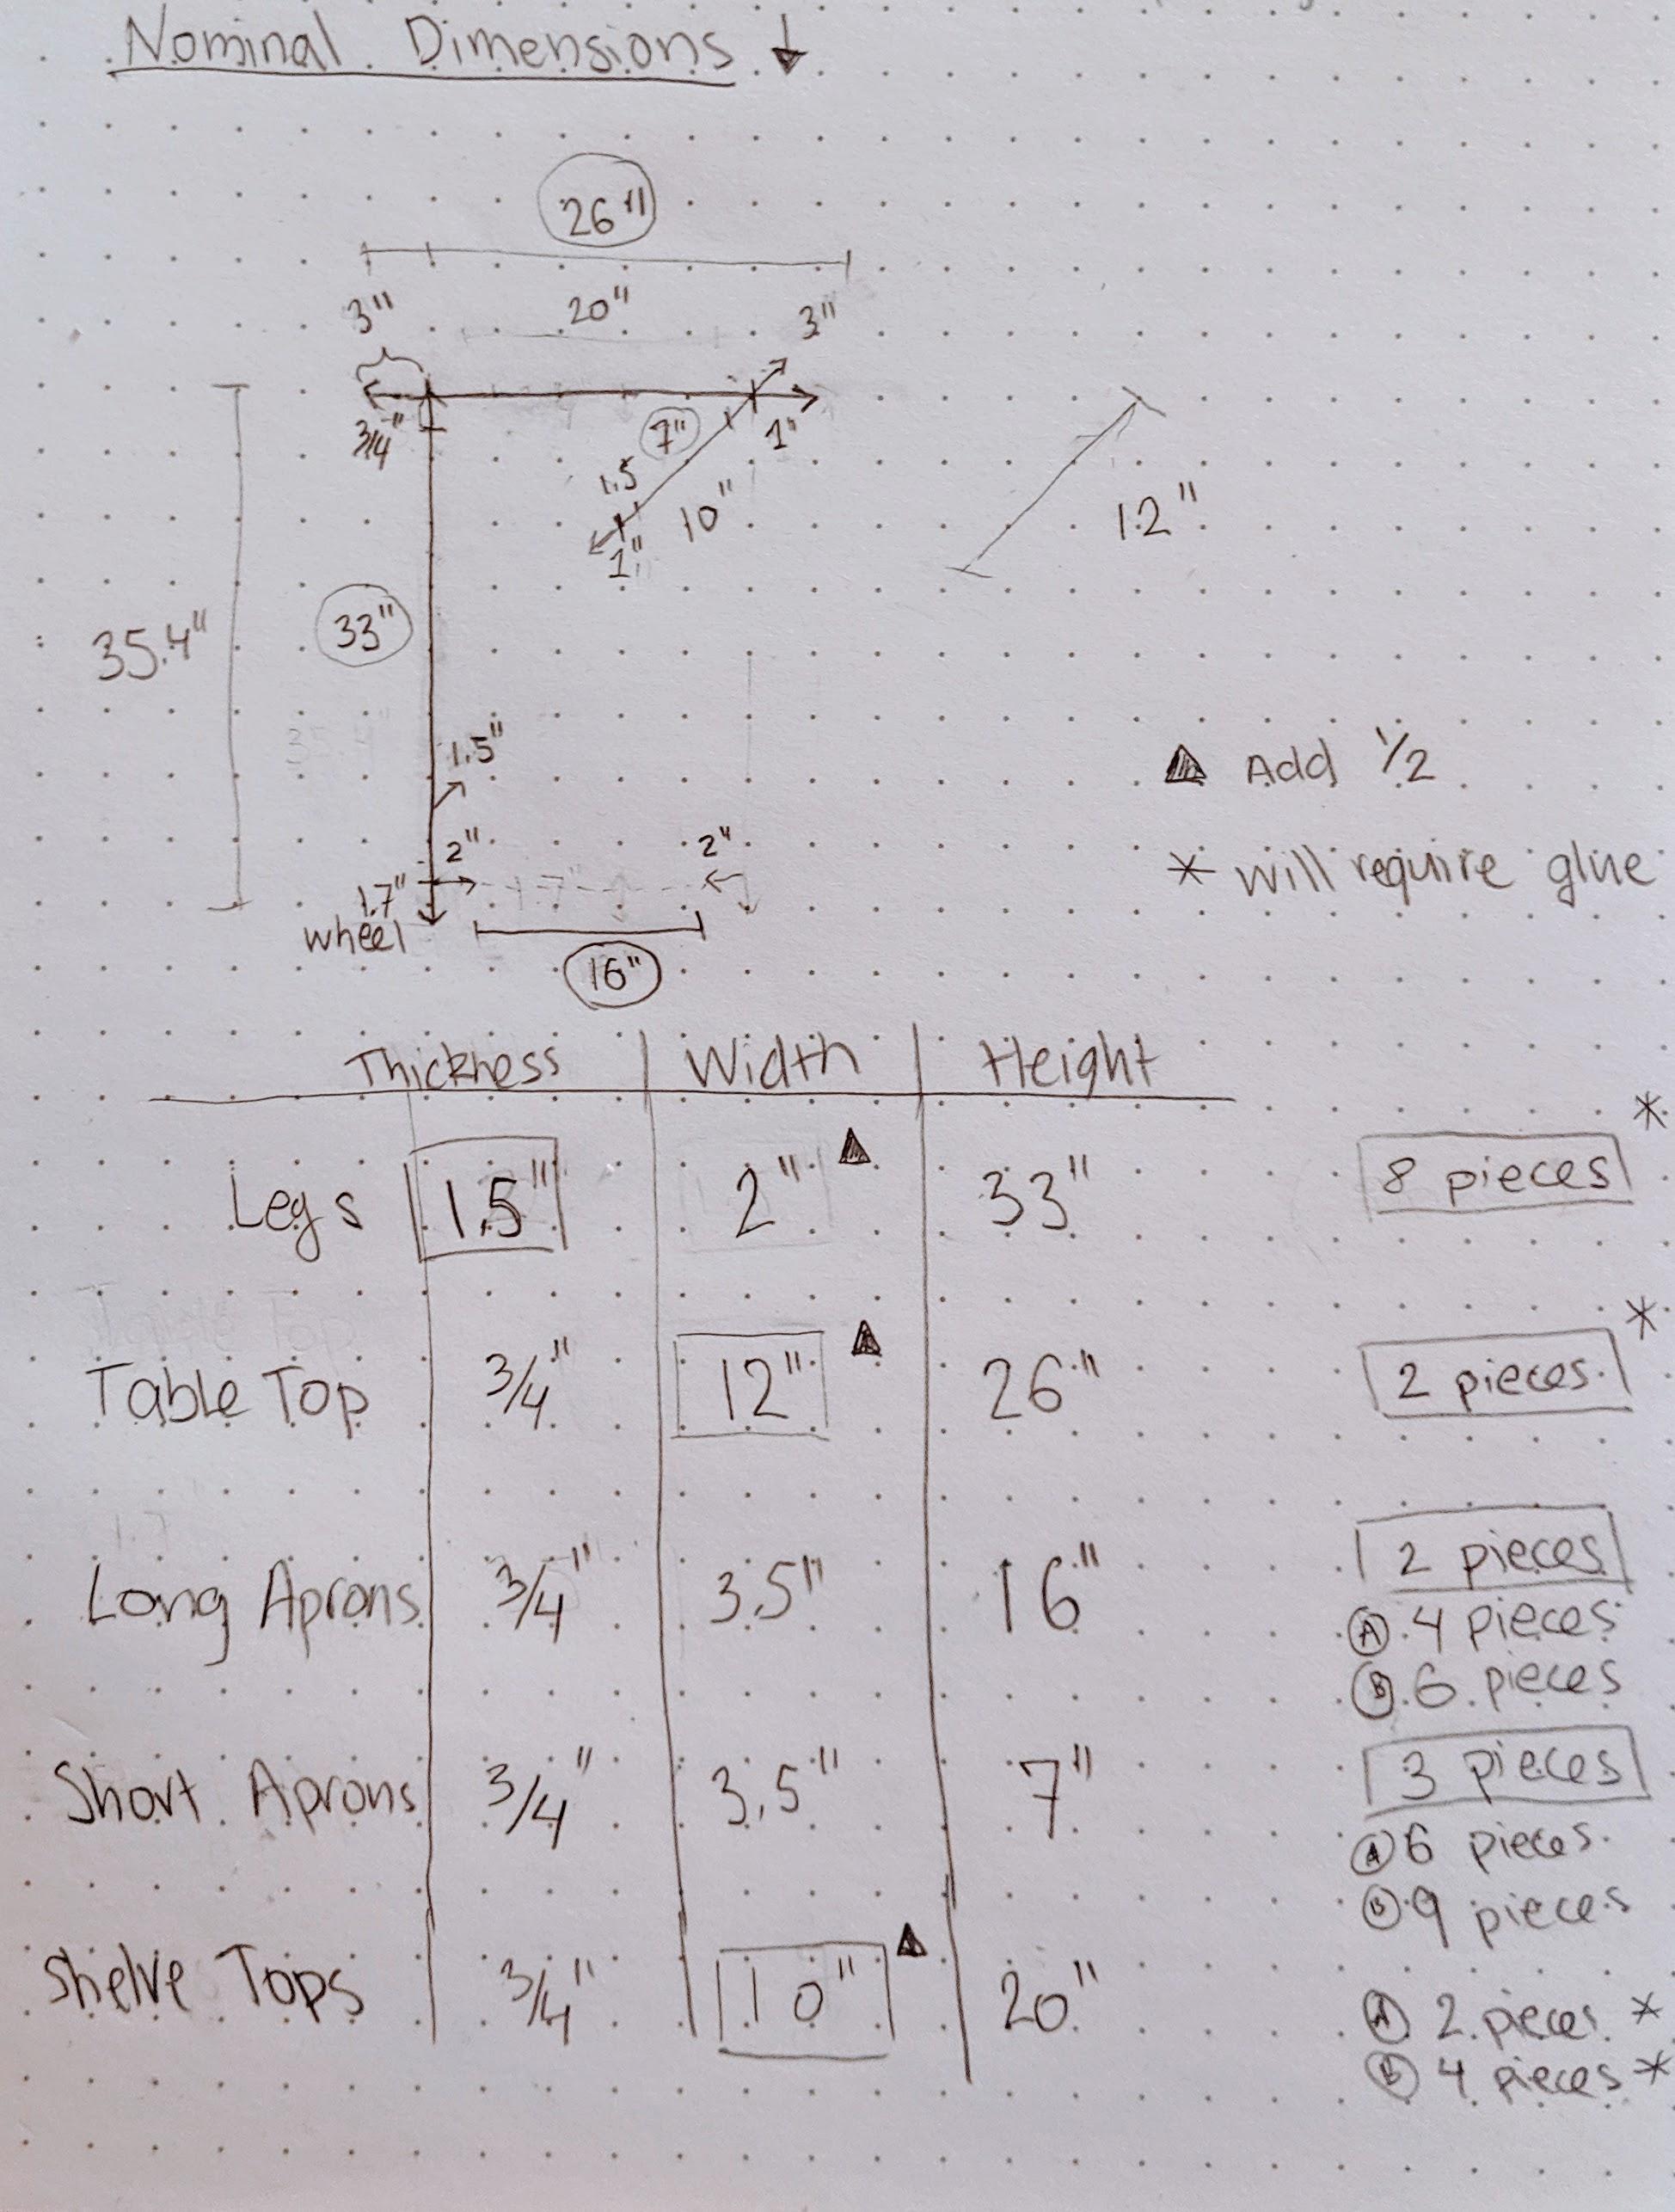 Nominal Dimensions ↓
26"
3" 20" 3"
3/4" 7" 1"
1.5 10" 12"
1"
33"
35.4"
1.5"
▲ Add 1/2
2" 2"
* will require glue
1.7"
wheel
16"
Thickness Width Height
*
Legs 1.5" 2" ▲ 33" 8 pieces
*
Table Top 3/4" 12" ▲ 26" 2 pieces
Long Aprons 3/4" 3.5" 16" 2 pieces
Ⓐ 4 pieces
Ⓑ 6 pieces
Short Aprons 3/4" 3.5" 7" 3 pieces
Ⓐ 6 pieces
Ⓑ 9 pieces
Shelve Tops 3/4" 10" ▲ 20" Ⓐ 2 pieces *
Ⓑ 4 pieces *